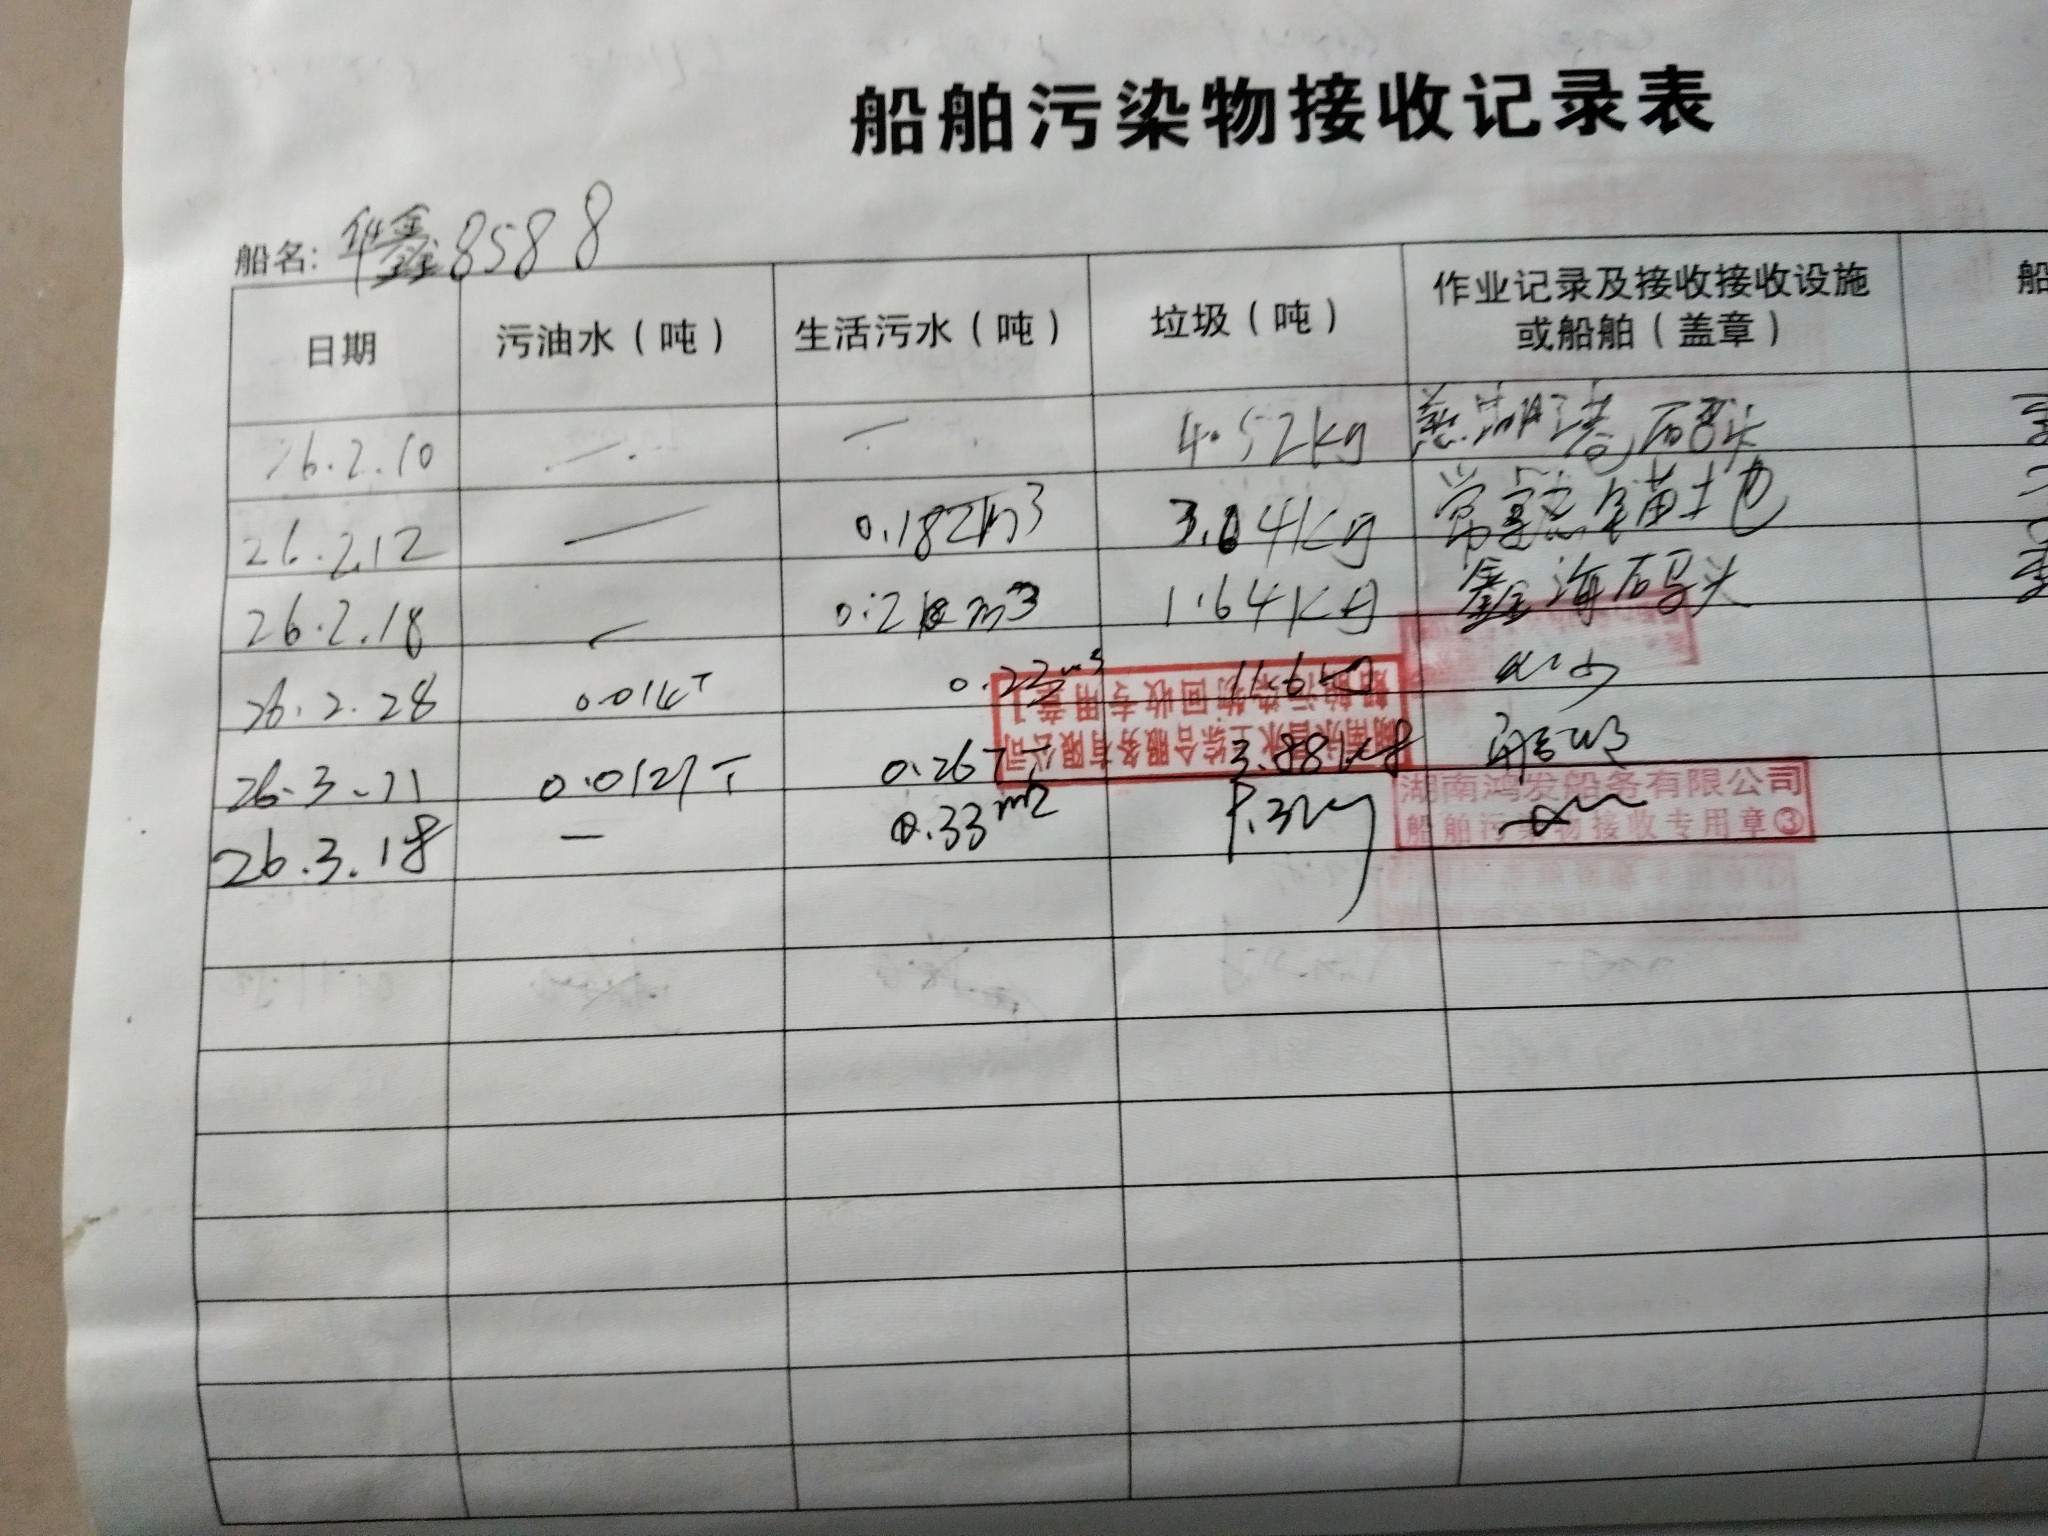 船舶污染物接收记录表
船名: 华鑫8588
日期 污油水（吨） 生活污水（吨） 垃圾（吨） 作业记录及接收接收设施或船舶（盖章） 船
26.2.10 — — 4.52kg 码头
26.2.12 — 0.182m3 3.04Kg 常熟锚地
26.2.18 — 1.64Kg 鑫海码头
26.2.28 0.22m3
26.3.11 0.0127T 0.267T 3.88kg
湖南鸿发船务有限公司
船舶污染物接收专用章③
26.3.18 — 0.33
综合服务有限公司
船舶污染物回收专用章